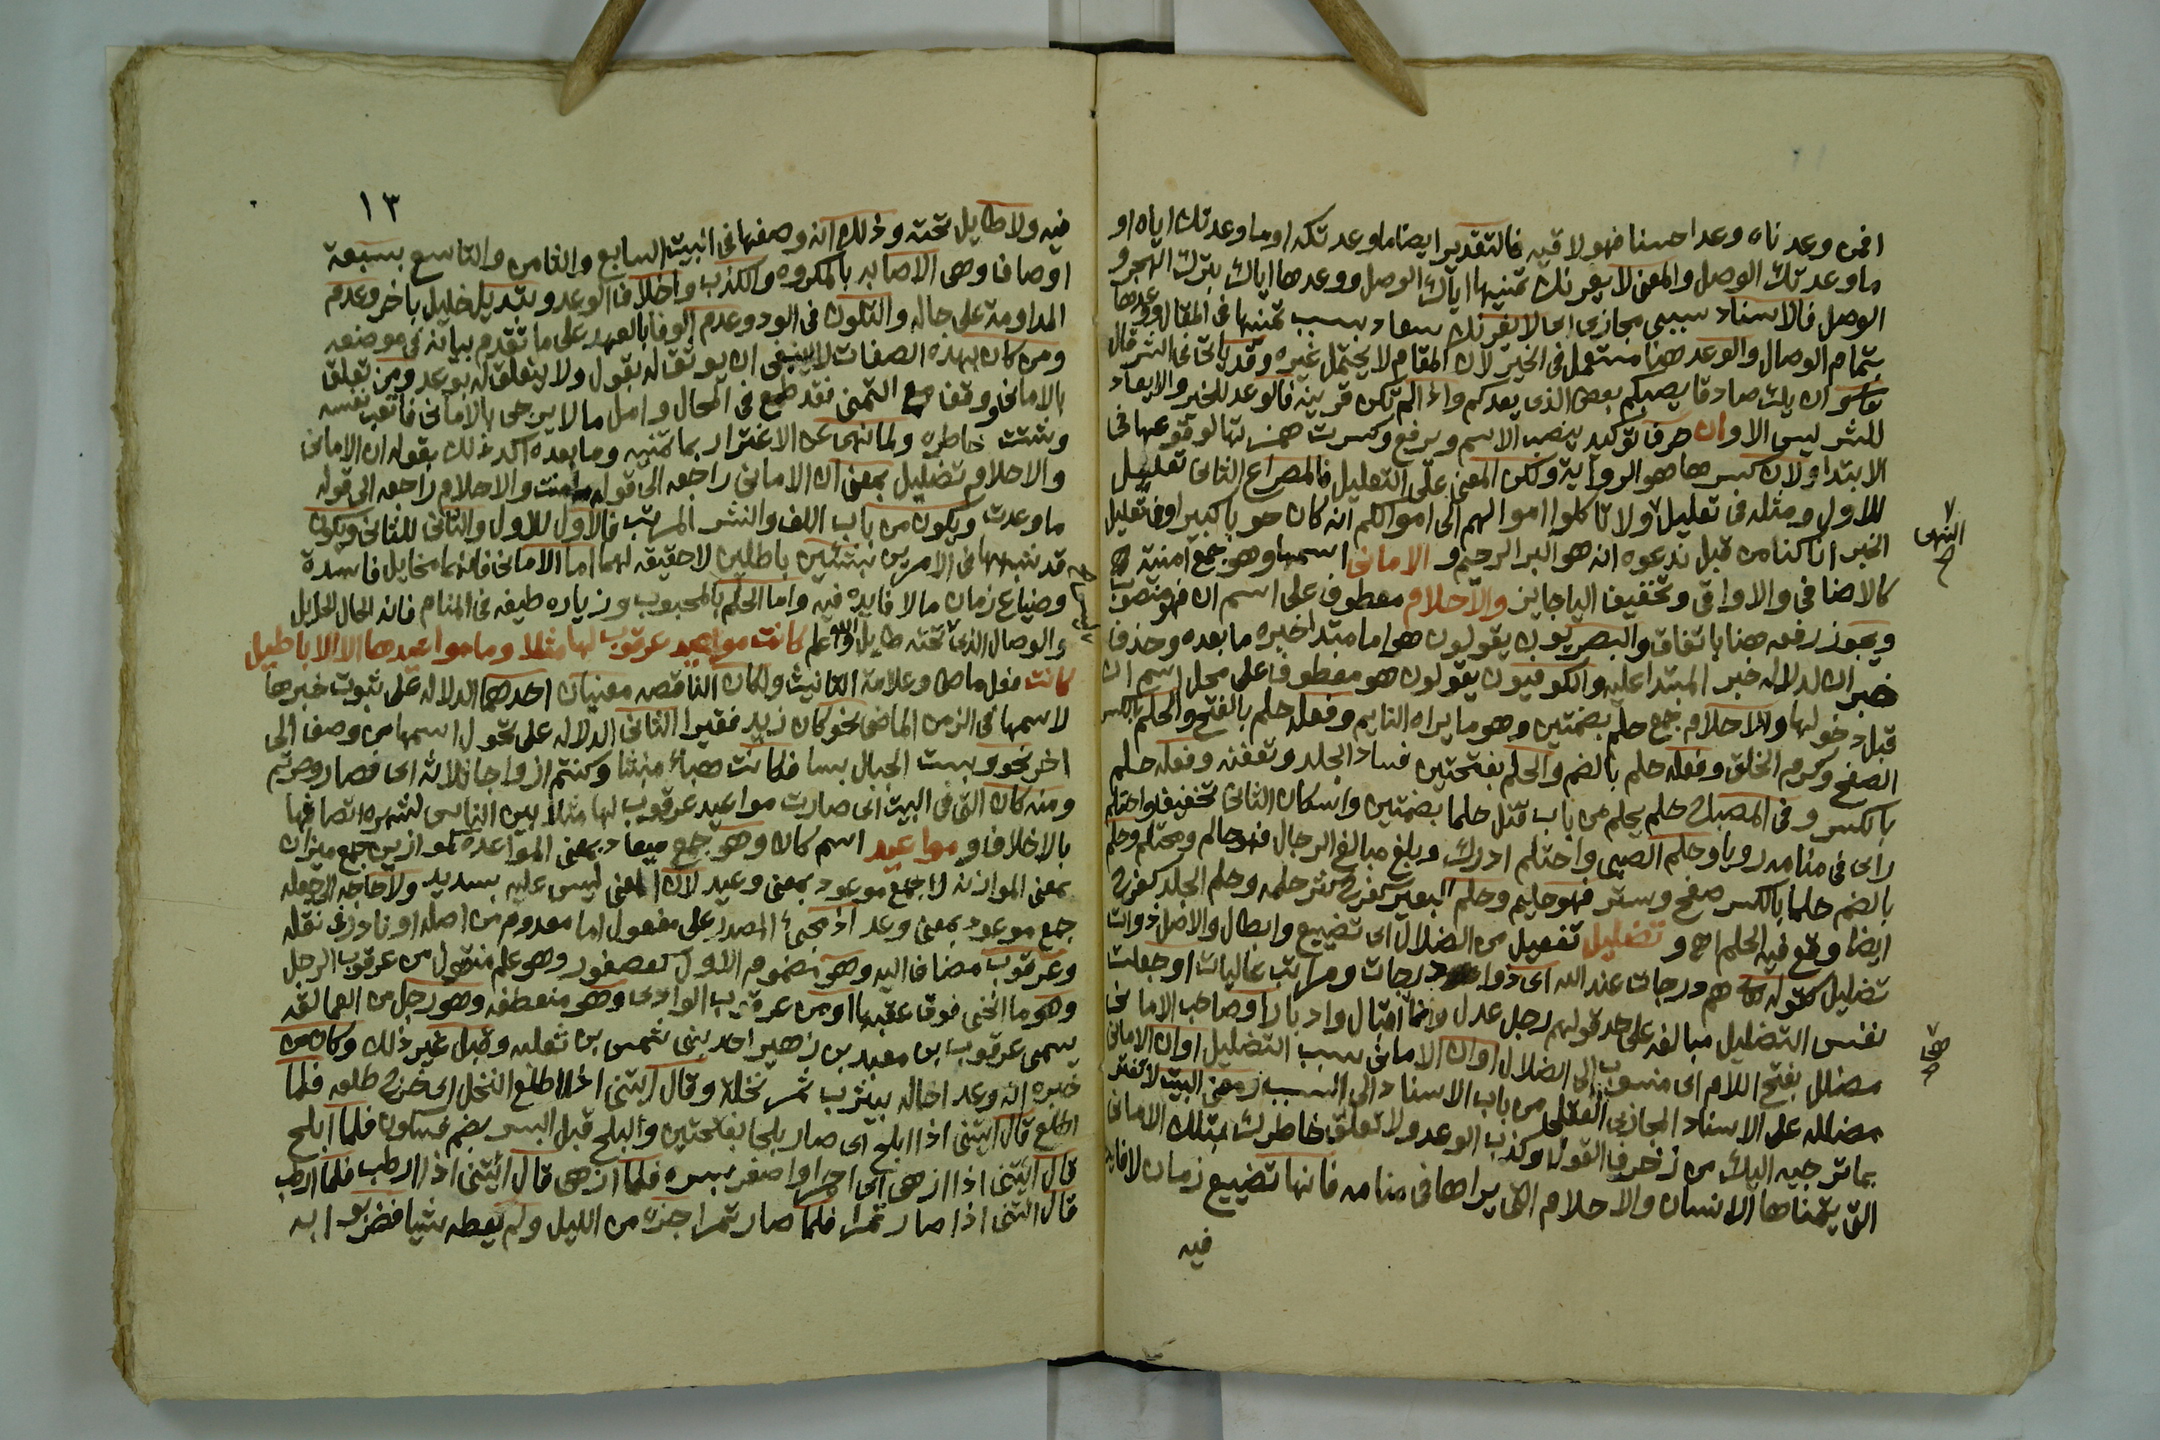 افمن وعدناه وعدا حسنا فهو لاقيه فالتقدير ايضا ما وعدتكه او ما وعدتك اياه او
ما وعدتك الوصل والمعنى لا يغرنك تمنيها اياك الوصل ووعدها اياك بترك الهجر و
الوصل فالاسناد سببي مجازي اى لا تغرنك سعاد بسبب تمنيها في المقال ووعدها
بتمام الوصال والوعد هنا مستعمل في الخير لان المقام لا يحتمل غيره وقد ياتي في الشر قال
تعالى وان يك صادقا يصبكم بعض الذي يعدكم واذا لم تكن قرينة فالوعد للخير والايعاد
للشر ليس الا و ان حرف توكيد ينصب الاسم ويرفع وكسرت همزتها لوقوعها في
الابتدا ولان كسرها هو الرواية ولكن المعنى على التعليل فالمصراع الثاني تعليل
للاول ومثله في تعليل ولا تاكلوا اموالهم الى اموالكم انه كان حوبا كبيرا وفي تعليل
الخبر انا كنا من قبل ندعوه انه هو البر الرحيم و الاماني اسمها وهو جمع امنية
كالاضافي والاواقي وتخفيف اليا جايز والاحلام معطوف على اسم ان فهو منصوب
ويجوز رفعه هنا باتفاق والبصريون يقولون هو اما مبتدا خبره ما بعده وحذف
خبر ان لدلالة خبر المبتدا عليه والكوفيون يقولون هو معطوف على محل اسم ان
قبل دخولها والاحلام جمع حلم بضمتين وهو ما يراه النايم وفعله حلم بالفتح والحلم بالكسر
الصفح وكرم الخلق وفعله حلم بالضم والحلم بفتحتين فساد الجلد وتعفنه وفعله حلم
بالكسر وفي المصباح حلم يحلم من باب قتل حلما بضمتين واسكان الثاني تخفيف واحتلم
راى في منامه رويا وحلم الصبي واحتلم ادرك وبلغ مبالغ الرجال فهو حالم ومحتلم وحلم
بالضم حلما بالكسر صفح وستر فهو حليم وحلم البعير كفرح كثر حلمه وحلم الجلد كفرح
ايضا وقع فيه الحلم اهـ و تضليل تفعيل من الضلال اى تضييع وابطال والاصل ذوات
تضليل كقوله هم درجات عند الله اى ذوا درجات ومراتب عاليات او جعلت
نفس التضليل مبالغة على حد قولهم رجل عدل وانما اقبال وادبار او صاحب الاماني
مضلل بفتح اللام اى منسوب الى الضلال او ان الاماني سبب التضليل او ان الاماني
مضللة على الاسناد المجازي العقلي من باب الاسناد الى السبب ومعنى البيت لا تغتر
بما ترجيه اليك من زخرف القول وكذب الوعد ولا تعلق خاطرك بتلك الاماني
التي يتمناها الانسان والاحلام التي يراها في منامه فانها تضييع زمان لا فايدة
فيه
انتهى
١٣
فيه ولا طايل تحته وذلك انه وصفها في البيت السابع والثامن والتاسع بسبعة
اوصاف وهي الاصابه بالمكروه والكذب واخلاف الوعد وتبديل خليل باخر وعدم
المداومة على حاله والتلون في الود وعدم الوفا بالعهد على ما تقدم بيانه في موضعه
ومن كان بهذه الصفات لا ينبغي ان يوثق له بقول ولا يتعلق له بوعد ومن تعلق
بالاماني ووقف مع التمني فقد طمع في المحال وامل مالا يرجى بالاماني فاتعب نفسه
وشتت خاطره ولما نهى عن الاغترار بما تمنيه وما بعده اكد ذلك بقوله ان الاماني
والاحلام تضليل بمعنى ان الاماني راجعه الى قوله ما منت والاحلام راجعه الى قوله
ما وعدت ويكون من باب اللف والنشر المرتب فالاول للاول والثاني للثاني ويكون
قد شبهها في الامرين بشيئين باطلين لا حقيقة لهما اما الاماني فانها مخايل فاسدة
وضياع زمان مالا فايدة فيه واما الحلم بالمحبوب وزيارة طيفه في المنام فانه الحال الحايل
والوصال الذي تحته طايل والله اعلم كانت مواعيد عرقوب لها مثلا وما مواعيدها الا الاباطيل
كانت فعل ماض وعلامة التانيث ولكان الناقصه معنيان احدهما الدلاله على ثبوت خبرها
لاسمها في الزمن الماضي نحو كان زيد فقيرا الثاني الدلالة على تحول اسمها من وصف الى
اخر نحو وبست الجبال بسا فكانت هباء منبثا وكنتم ازواجا ثلاثة اى فصار وصرتم
ومنه كان التي في البيت اى صارت مواعيد عرقوب لها مثلا بين الناس لشهرة اتصافها
بالاخلاف و مواعيد اسم كان وهو جمع ميعاد بمعنى المواعدة كموازين جمع ميزان
بمعنى الموازنة لا جمع موعود بمعنى وعيد لان المعنى ليس عليه بسديد ولا حاجه الى جعله
جمع موعود بمعنى وعد اذ مجيء المصدر على مفعول اما معدوم من اصله او نادر في نقله
وعرقوب مضاف اليه وهو مضموم الاول كعصفور وهو علم منقول من عرقوب الرجل
وهو ما انحنى فوق عقبها او من عرقوب الوادي وهو منعطفه وهو رجل من العمالقه
يسمى عرقوب بن معبد بن زهير احد بني شمس بن ثعلبه وقيل غير ذلك وكان من
خبره انه وعد اخا له بيثرب ثمر نخلة وقال ايتني اذا اطلع النخل اى خرج طلعه فلما
اطلع قال ايتني اذا ابلح اى صار بلحا بفتحتين والبلح قبل البسر بضم فسكون فلما ابلح
قال ايتني اذا ازهى اى احمر او اصفر بسره فلما ازهى قال ايتني اذا ارطب فلما ارطب
قال ايتني اذا صار تمرا فلما صار تمرا جزه من الليل ولم يعطه شيا فضربوا به